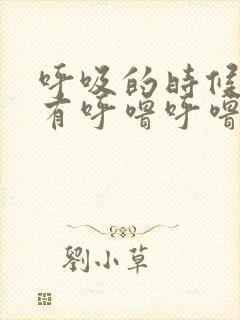 呼吸的時候
有呼嚕呼嚕
劉小草